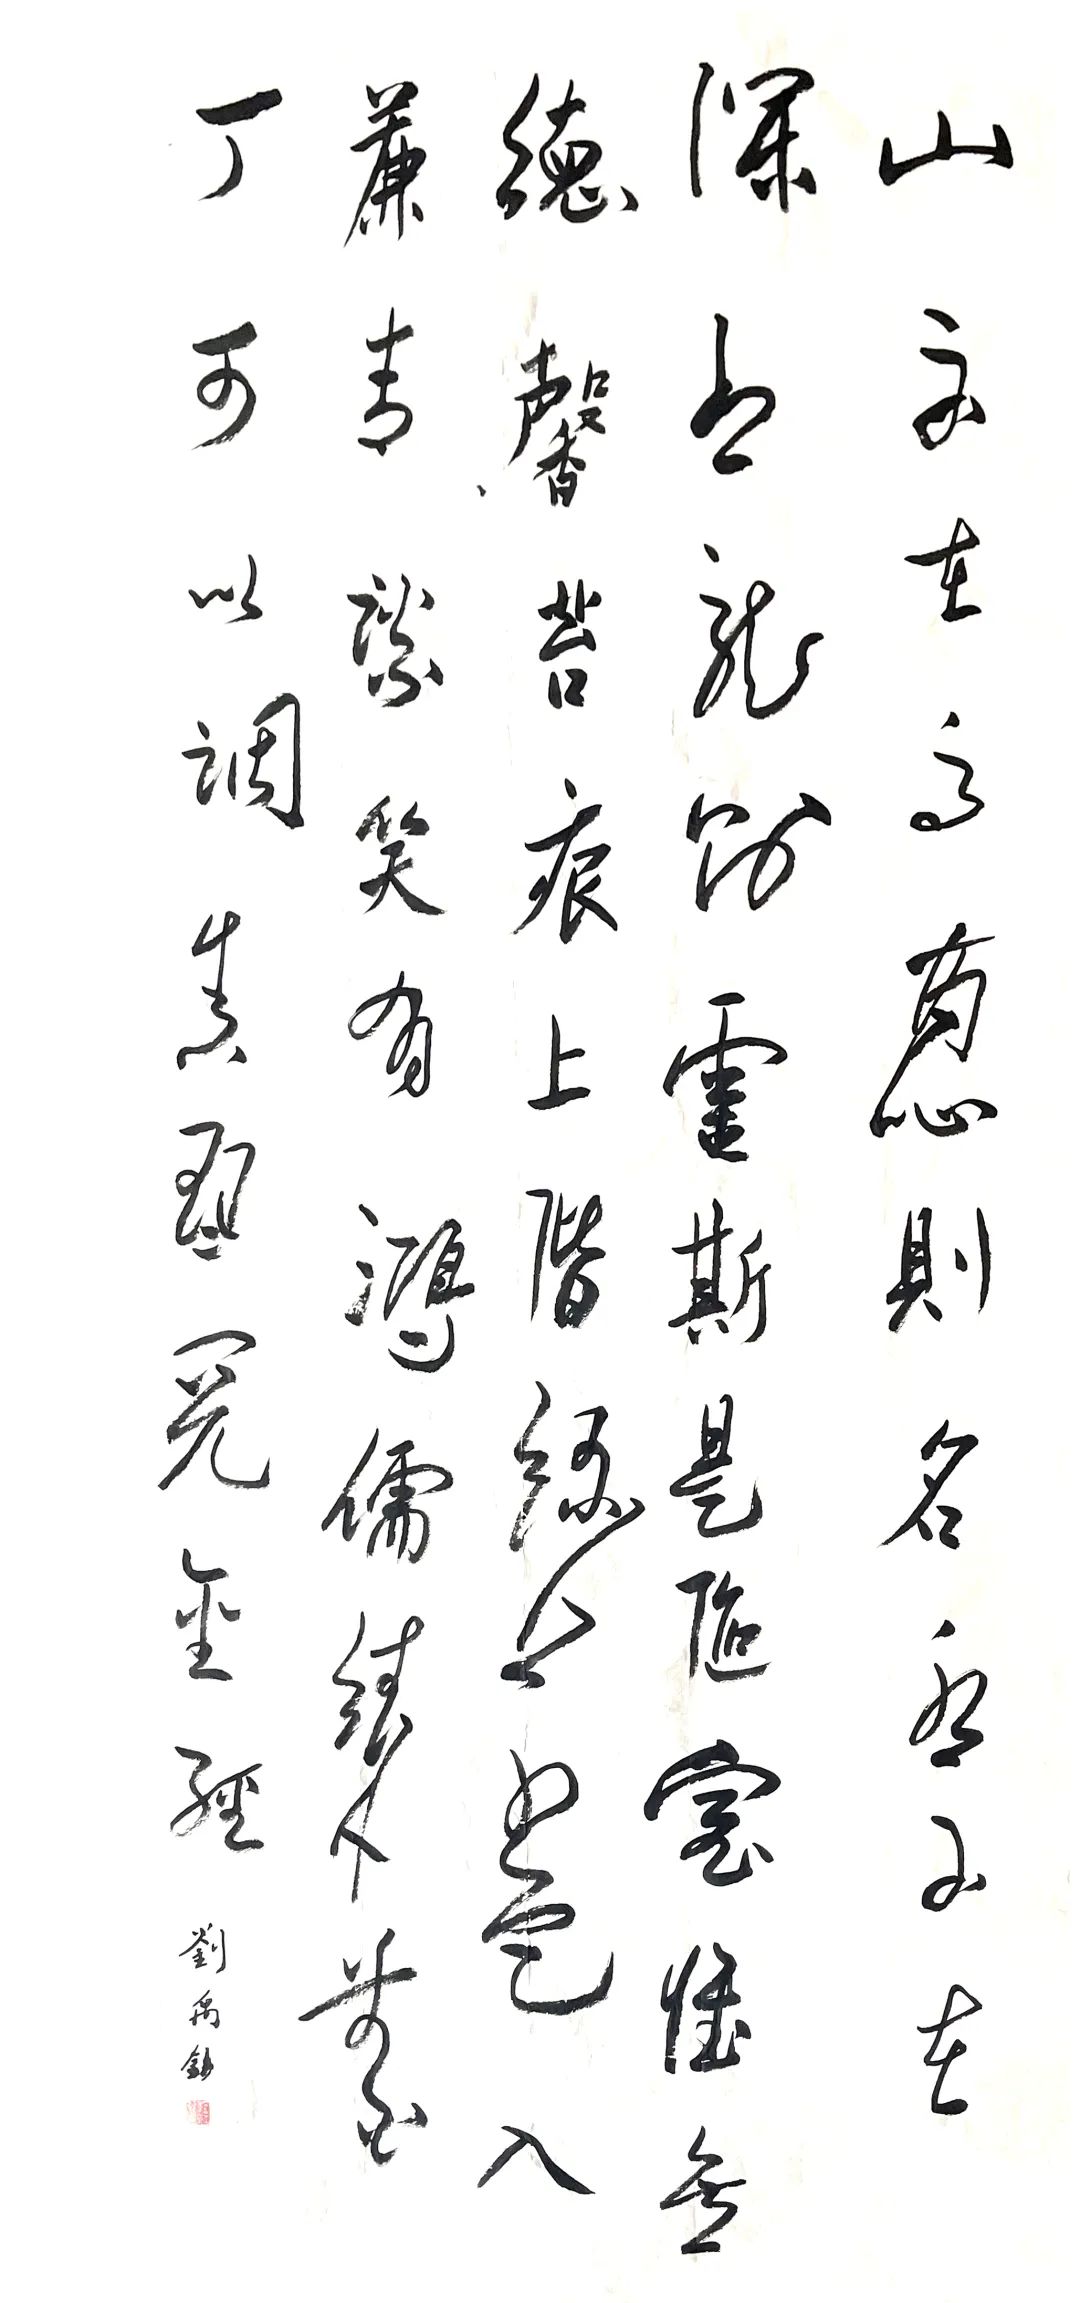 山不在高有仙則名水不在
深有龍則靈斯是陋室惟吾
德馨苔痕上階綠草色入
簾青談笑有鴻儒往來無白
丁可以調素琴閱金經
劉禹錫